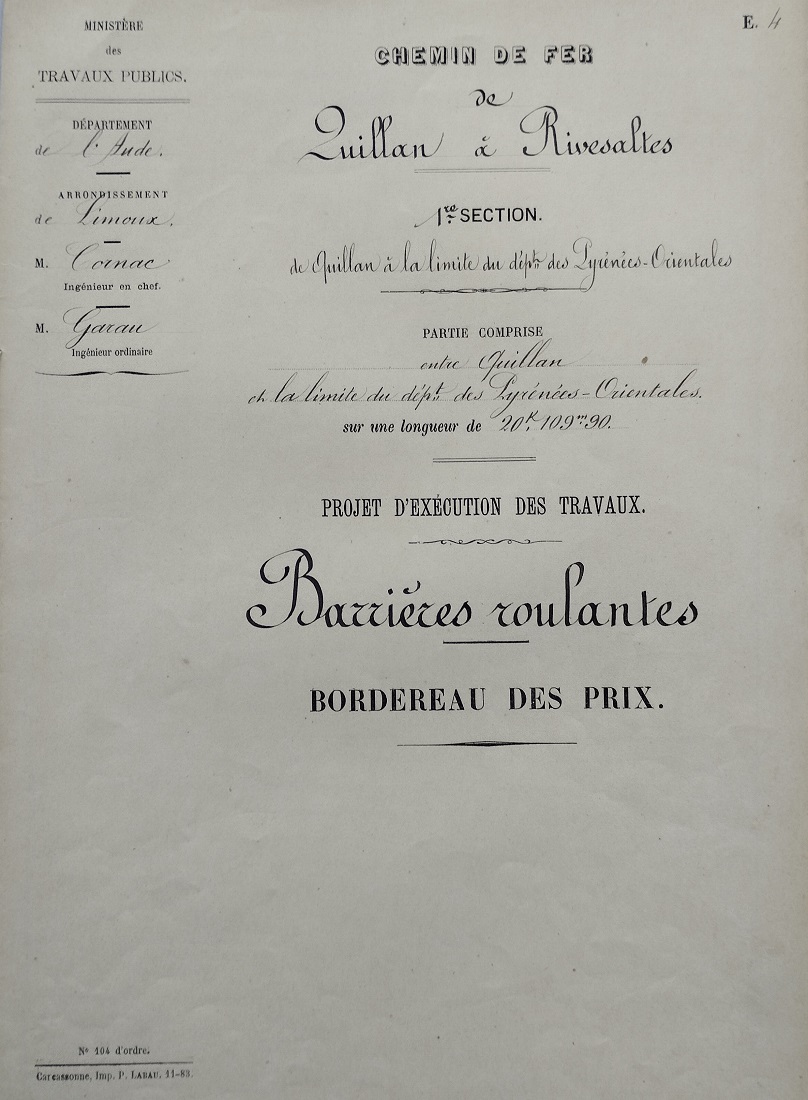 MINISTÈRE
des
TRAVAUX PUBLICS.
DÉPARTEMENT
de l'Aude.
ARRONDISSEMENT
de Limoux.
M. Cornac
Ingénieur en chef.
M. Garau
Ingénieur ordinaire
E. 4
CHEMIN DE FER
de
Quillan à Rivesaltes
1re SECTION.
de Quillan à la limite du dépt. des Pyrénées-Orientales
PARTIE COMPRISE
entre Quillan
et la limite du dépt. des Pyrénées-Orientales.
sur une longueur de 20k.109m90.
PROJET D'EXÉCUTION DES TRAVAUX.
Barrières roulantes
BORDEREAU DES PRIX.
No 104 d'ordre.
Carcassonne, Imp. P. LABAU. 11-83.